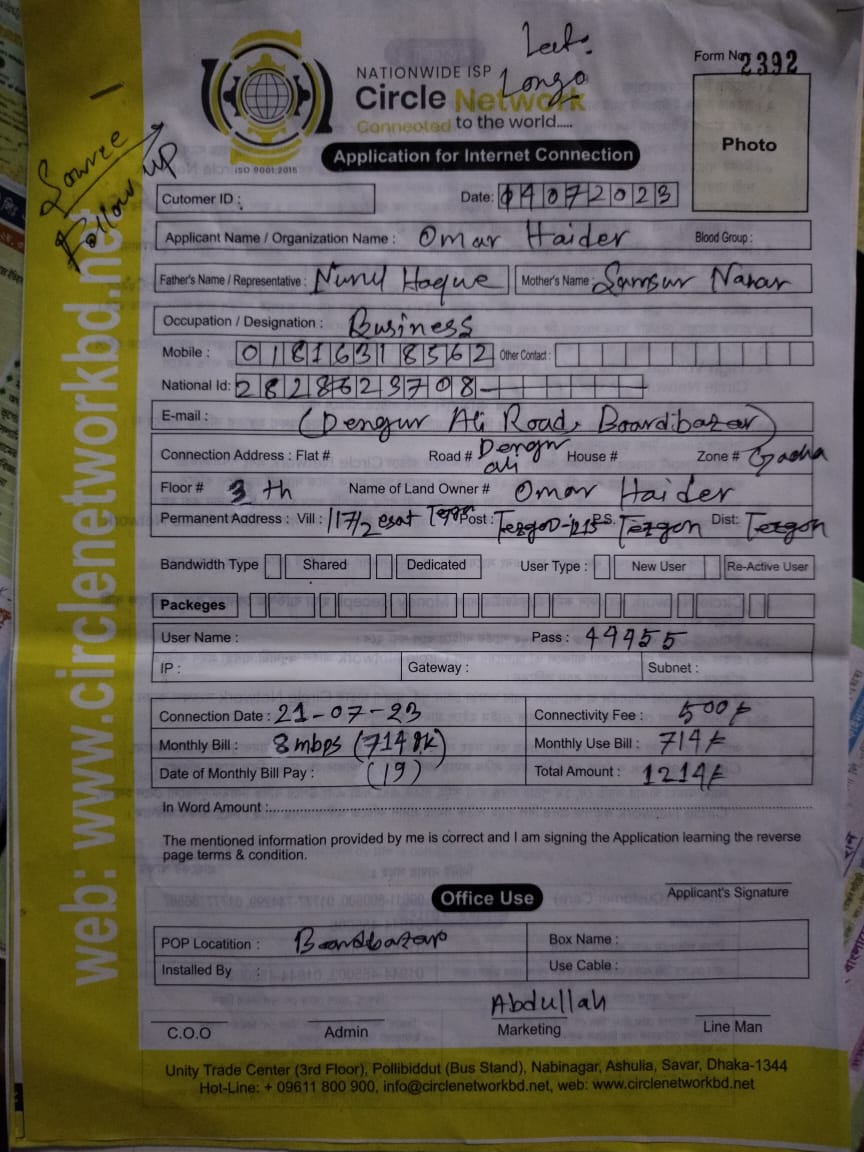 Leet:
Longo
Form No 2392
NATIONWIDE ISP
Circle Network
Connected to the world.....
ISO 9001:2015
Photo
Source
Follow up
Application for Internet Connection
Cutomer ID :
Date: 04072023
Applicant Name / Organization Name : Omar Haider Blood Group :
Father's Name / Representative : Nurul Haque Mother's Name : Samsur Nahar
Occupation / Designation : Business
Mobile : 01816318562 Other Contact :
National Id: 2828623708
E-mail : (Dengur Ali Road, Boardibazar)
Connection Address : Flat # Road # Dengur ali House # Zone # Gacha
Floor # 3 th Name of Land Owner # Omar Haider
Permanent Address : Vill : 117/2 esat Post : P.S. Tezgon Dist: Tezgon
Bandwidth Type Shared Dedicated User Type : New User Re-Active User
Packeges
User Name : Pass : 44955
IP : Gateway : Subnet :
Connection Date : 21-07-23 Connectivity Fee : 500/-
Monthly Bill : 8 mbps (714 Monthly Use Bill : 714/-
Date of Monthly Bill Pay : (19) Total Amount : 1214/-
In Word Amount :
The mentioned information provided by me is correct and I am signing the Application learning the reverse
page terms & condition.
Applicant's Signature
Office Use
POP Locatition : Boardbazar Box Name :
Installed By : Use Cable :
Abdullah
C.O.O Admin Marketing Line Man
Unity Trade Center (3rd Floor), Pollibiddut (Bus Stand), Nabinagar, Ashulia, Savar, Dhaka-1344
Hot-Line: + 09611 800 900, info@circlenetworkbd.net, web: www.circlenetworkbd.net
web: www.circlenetworkbd.net